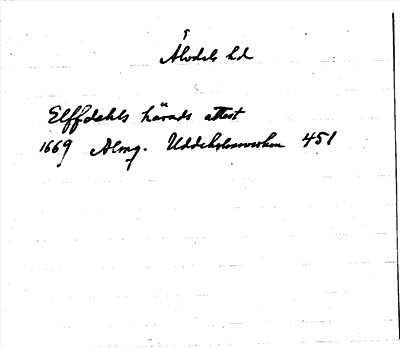 Älvdals hd
Elffdahls härads attest
1669 Almq. Uddeholmsverken 451